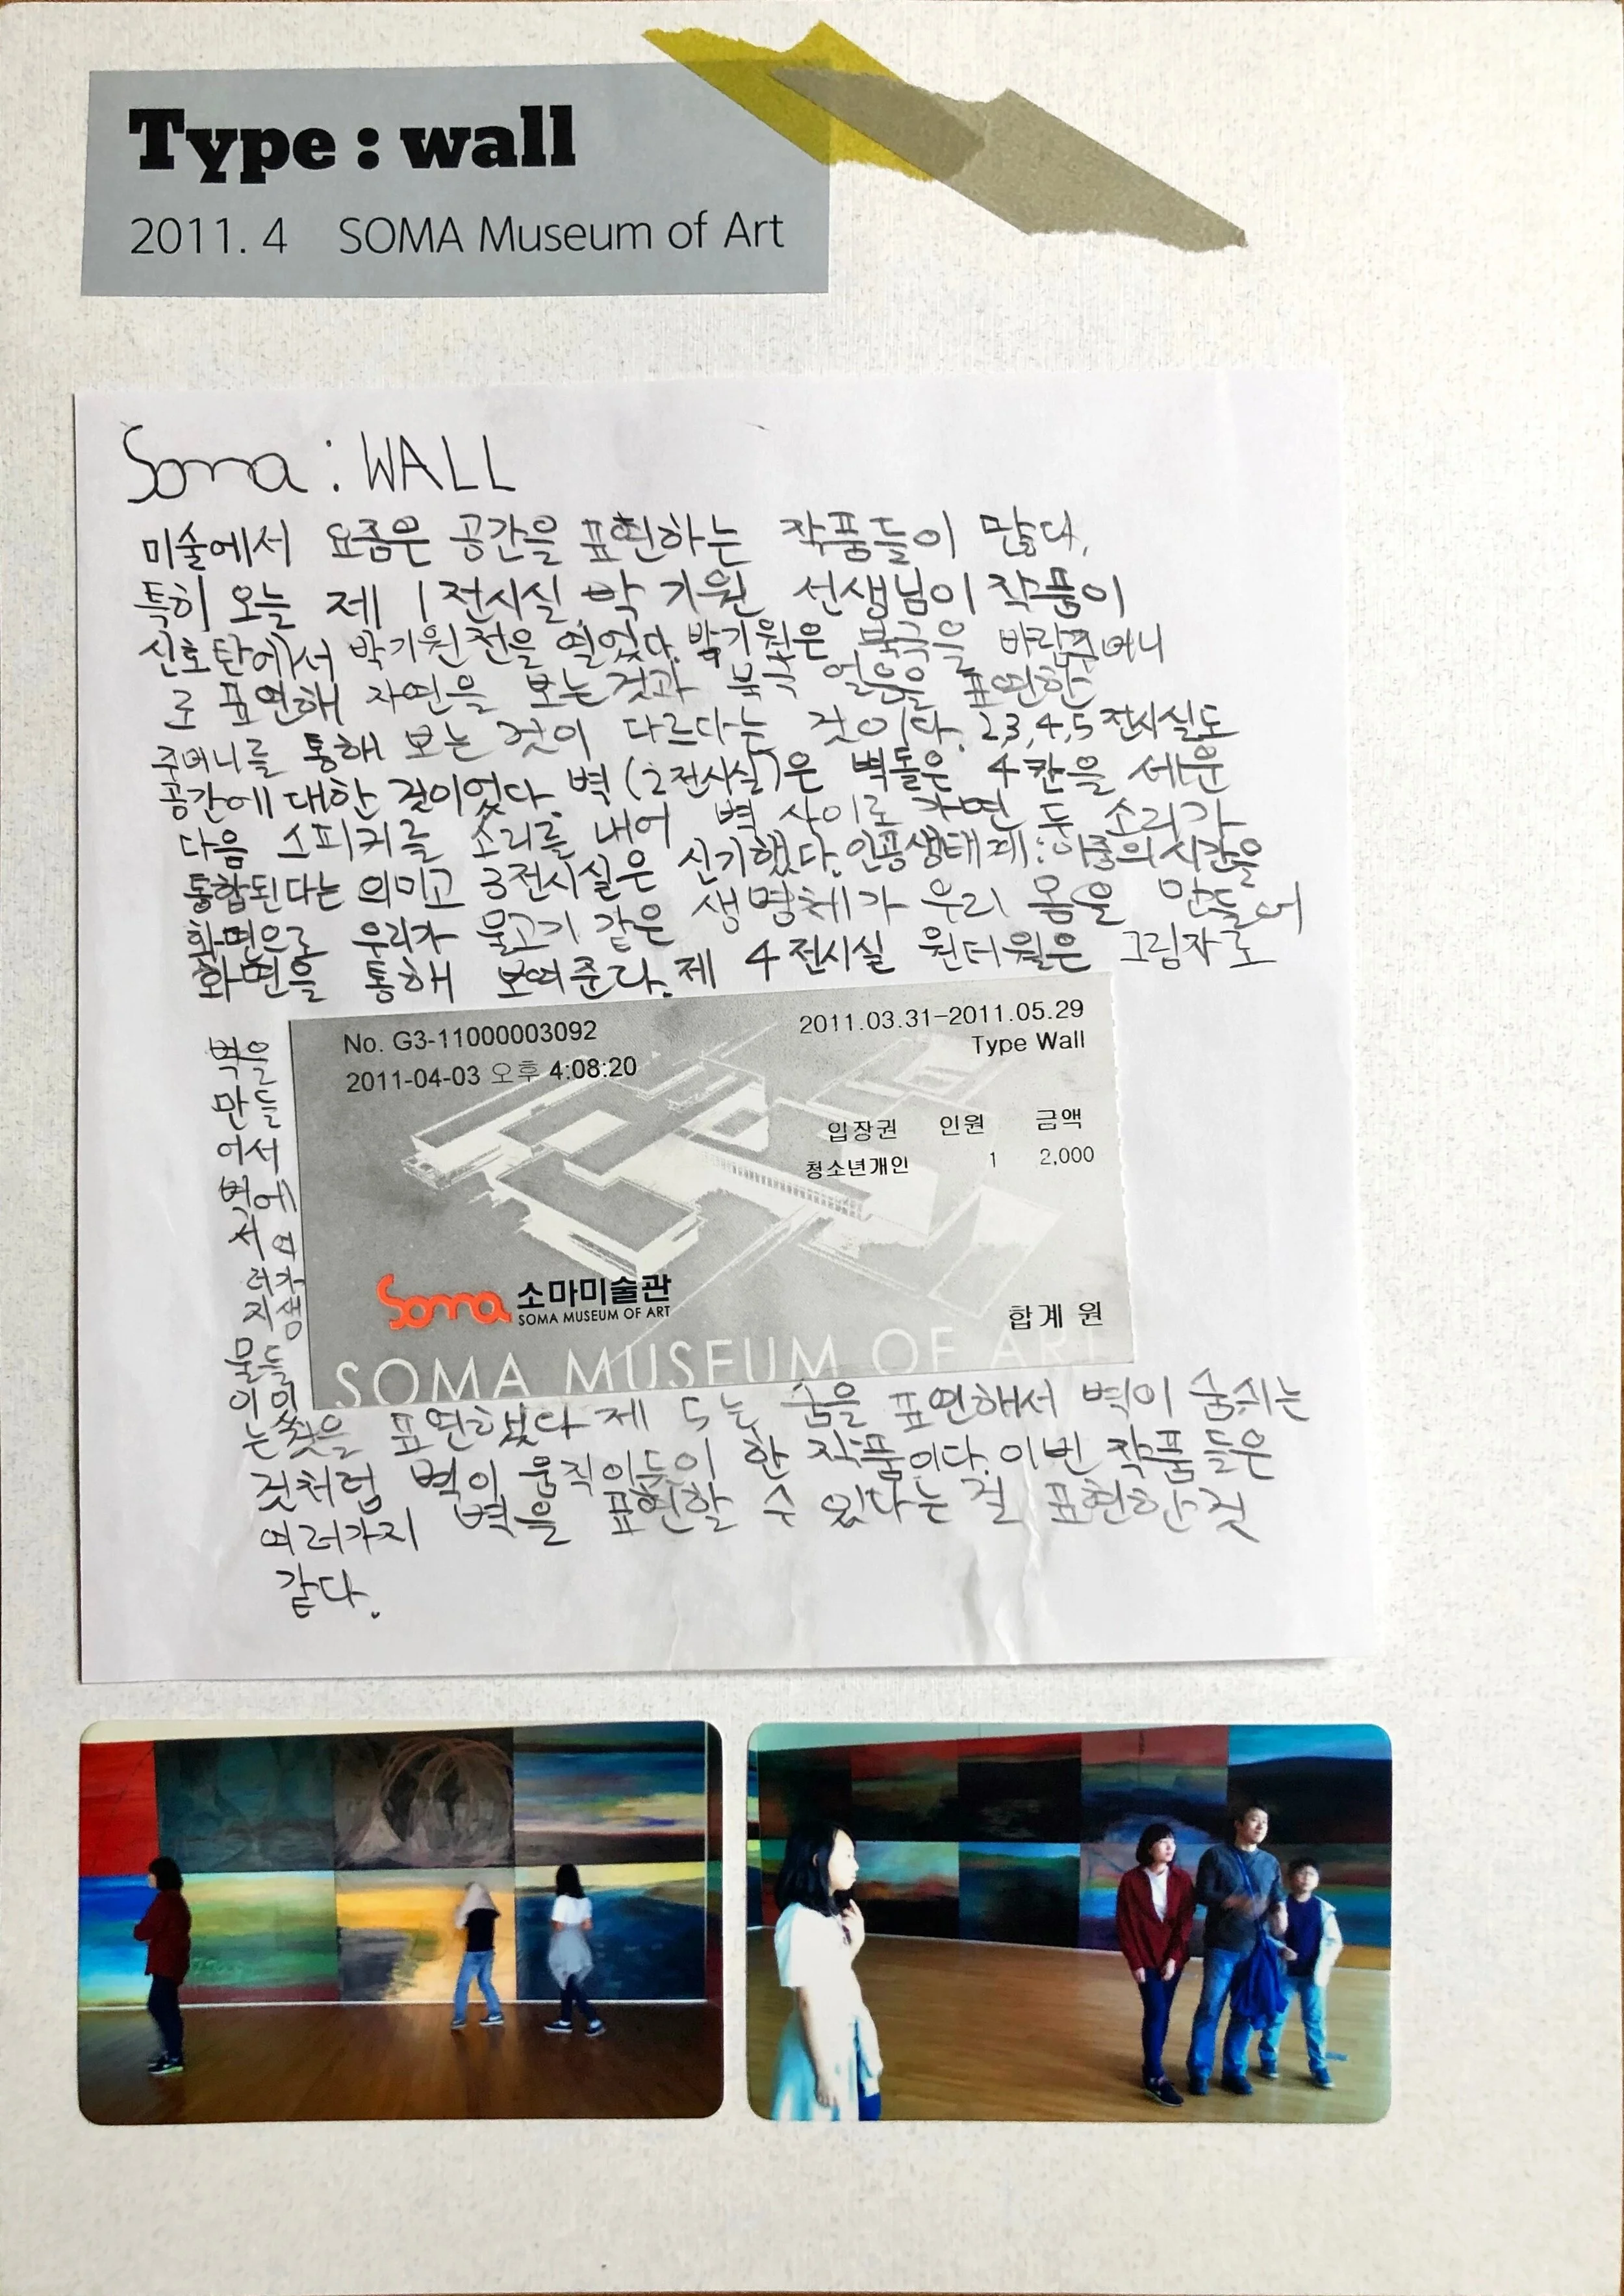 Type : wall
2011. 4 SOMA Museum of Art
Soma : WALL
미술에서 요즘은 공간을 표현하는 작품들이 많다.
특히 오늘 제 1전시실 박기원 선생님이 작품이
신호탄에서 박기원전을 열었다. 박기원은 북극을 바람주머니
로 표현해 자연을 보는 것과 북극 얼음을 표현한
주머니를 통해 보는 것이 다르다는 것이다. 2,3,4,5 전시실도
공간에 대한 것이었다. 벽 (2전시실)은 벽돌은 4칸을 세운
다음 스피커를 소리를 내어 벽 사이로 가면 두 소리가
통합된다는 의미고 3전시실은 신기했다. 인공생태계:이중의시간을
화면으로 우리가 물고기 같은 생명체가 우리 몸을 만들어
화면을 통해 보여준다. 제 4전시실 윈터월은 그림자로
벽을
만들
어서
벽에
서 여
러가
지 생
물들
이 있
는 것을 표현했다 제 5는 숨을 표현해서 벽이 숨쉬는
것처럼 벽이 움직이듯이 한 작품이다. 이번 작품들은
여러가지 벽을 표현할 수 있다는 걸 표현한 것
같다.
No. G3-11000003092
2011-04-03 오후 4:08:20
2011.03.31-2011.05.29
Type Wall
입장권 인원 금액
청소년개인 1 2,000
Soma 소마미술관
SOMA MUSEUM OF ART
합계 원
SOMA MUSEUM OF ART